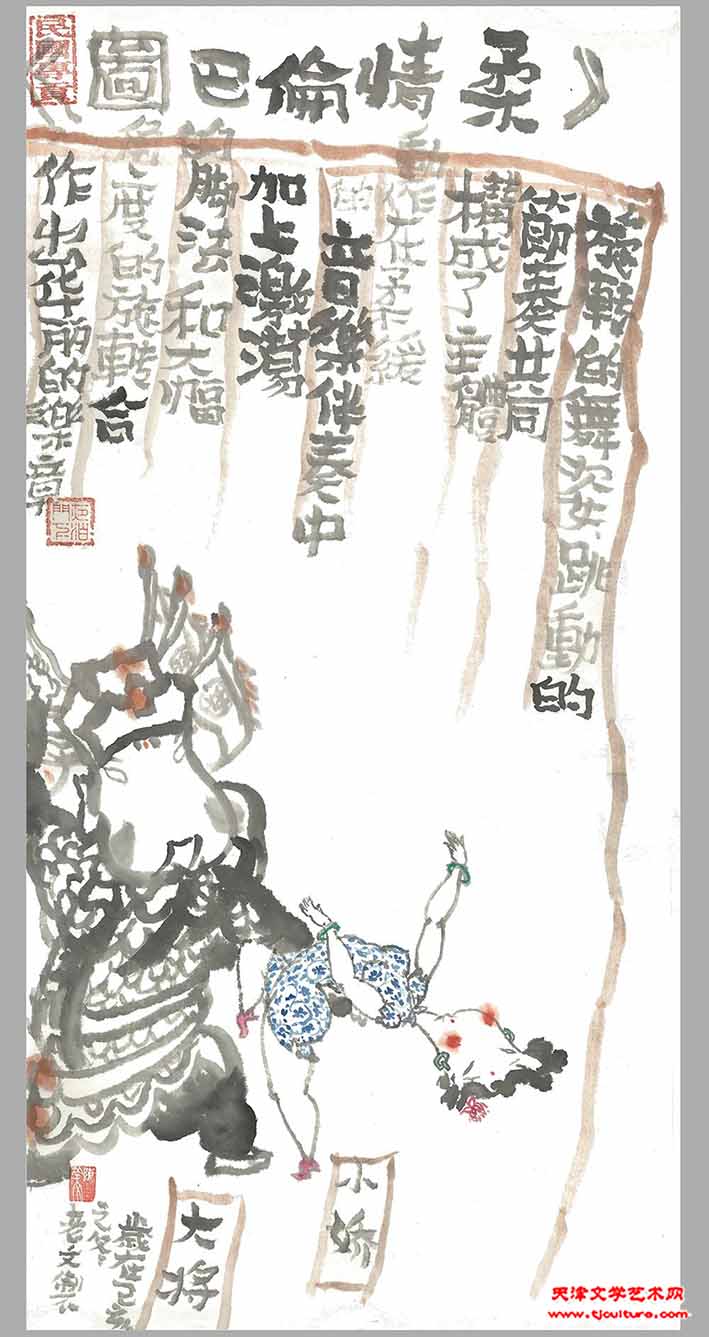 《柔情倫巴圖》
旋轉的舞姿、跳動的
節奏共同
構成了主體
動作在柔緩
的音樂伴奏中
加上激蕩
的脚法和大幅
角度的旋轉合
作出华丽的樂章
小娇
大将
歲在己亥
之冬
老文製
天津文学艺术网
www.tjculture.com